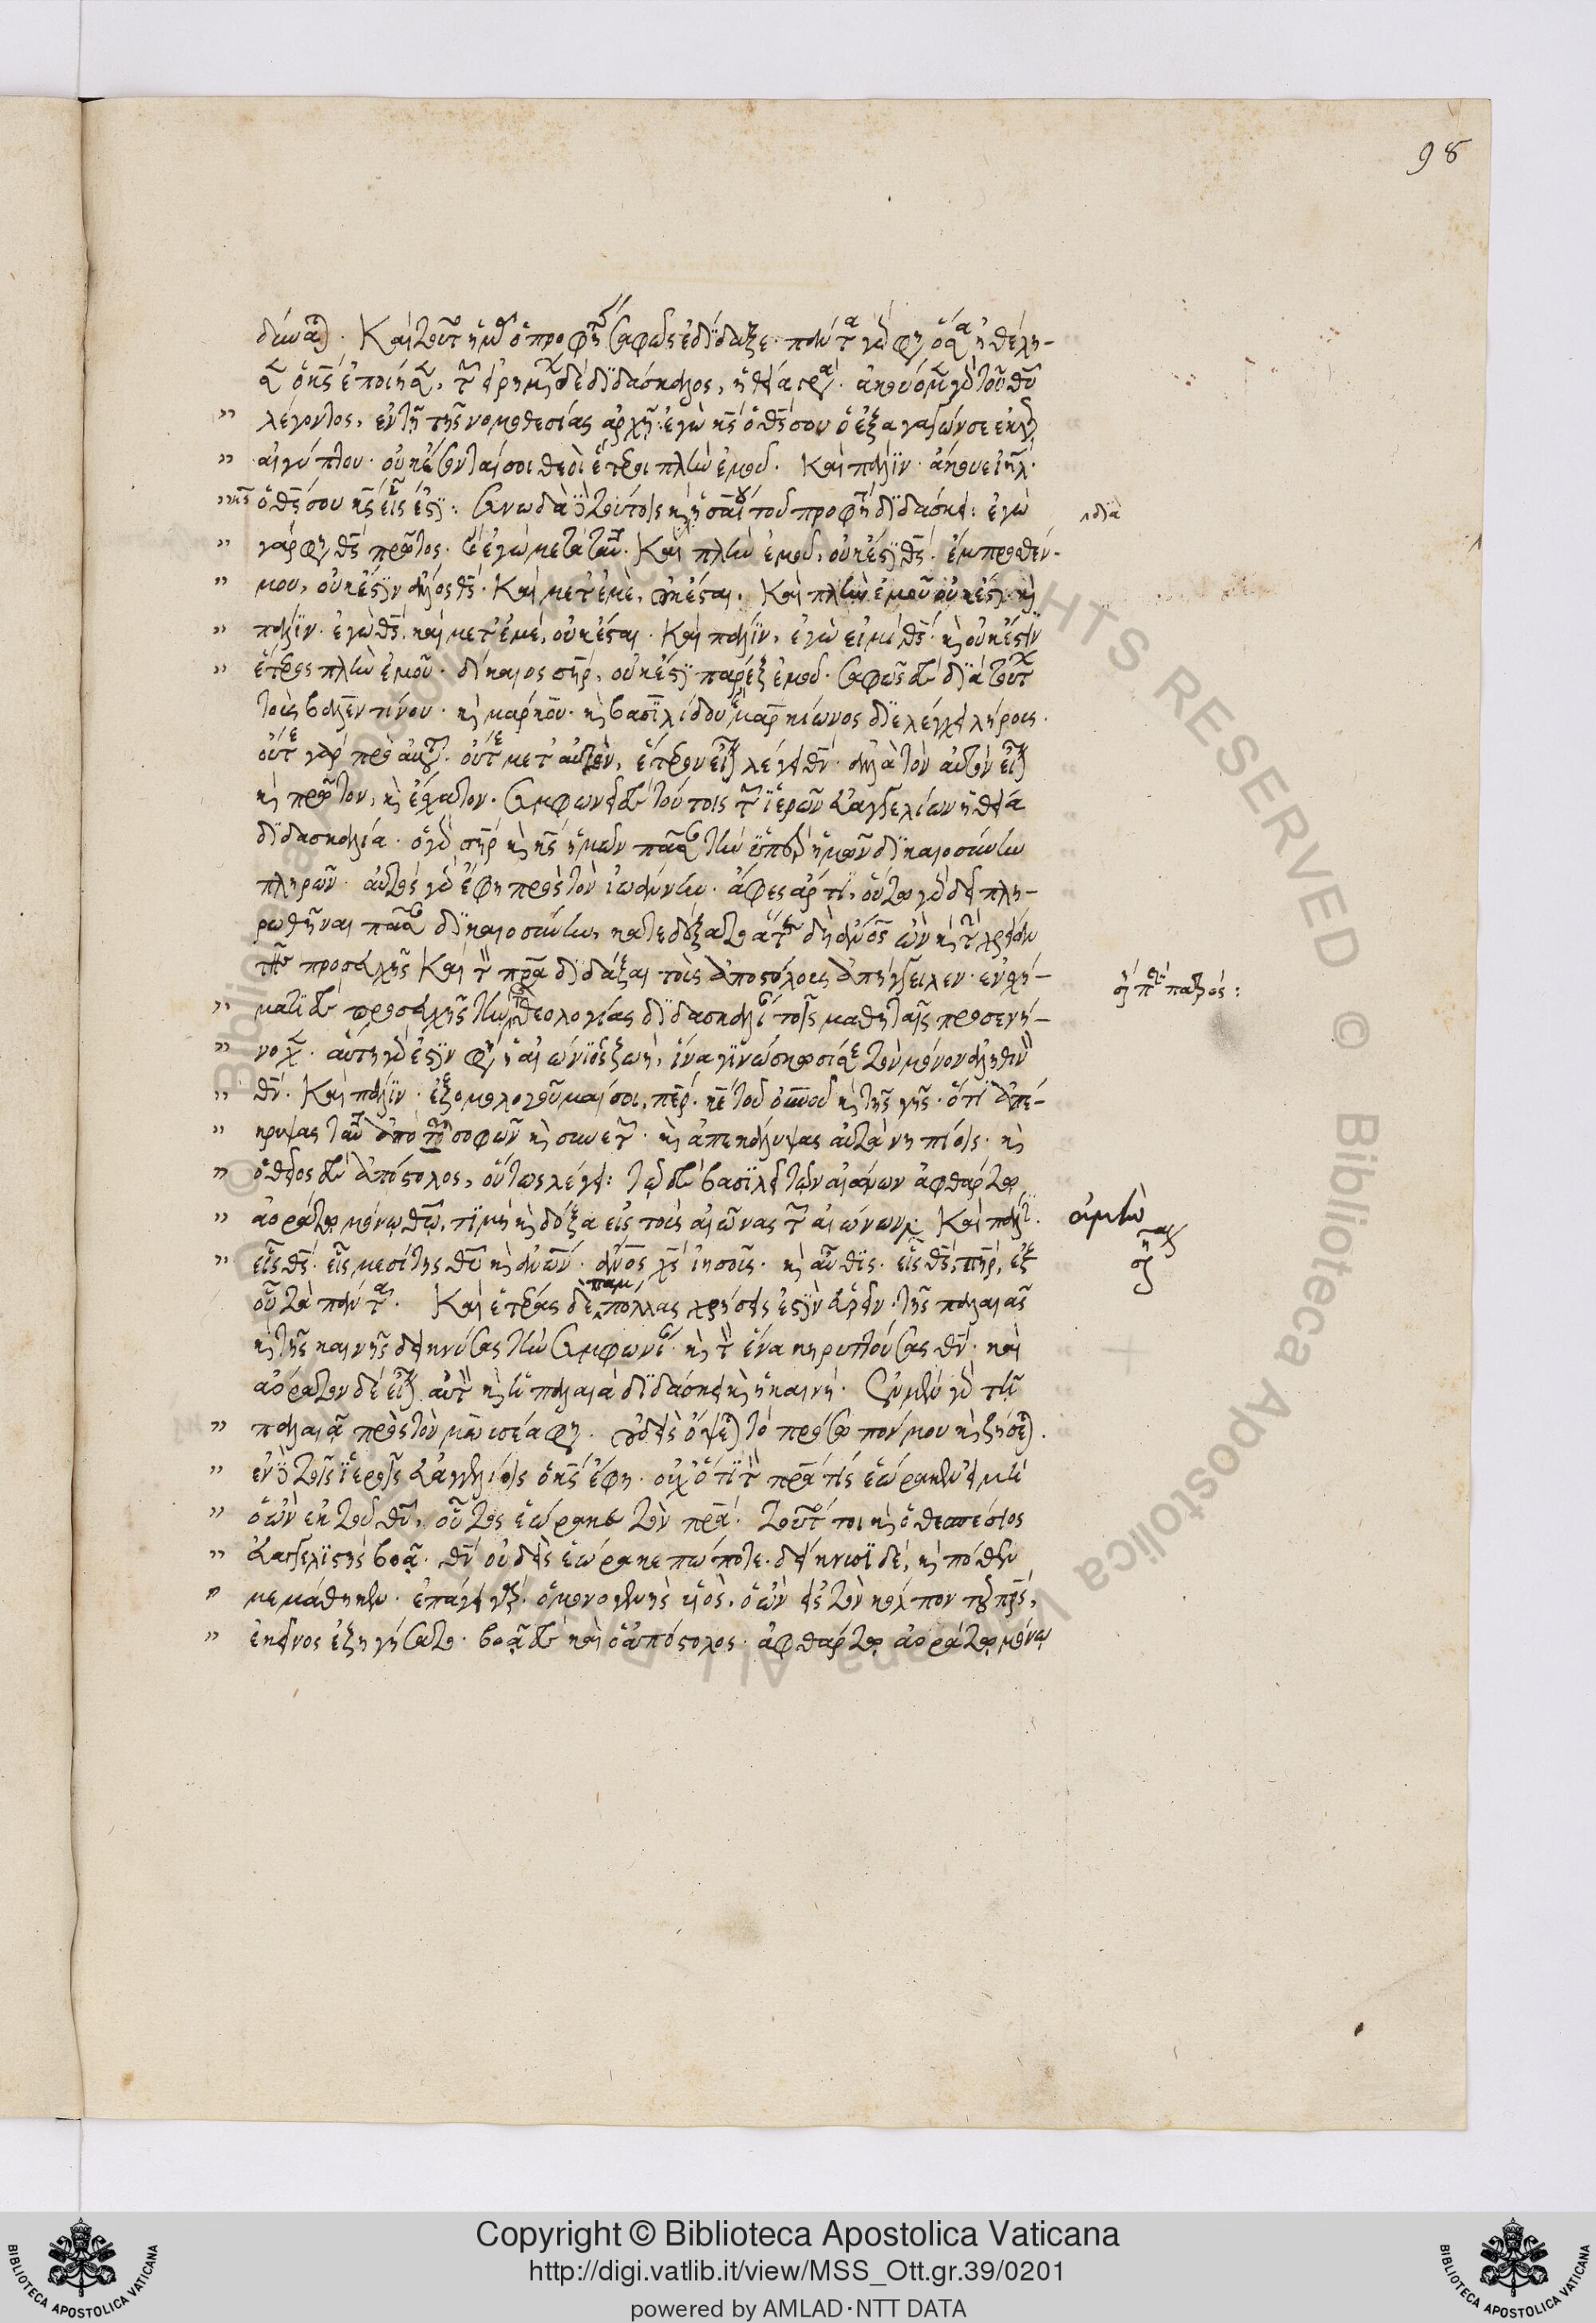 98
δύναται. Καὶ τοῦτο ἡμῖν ὁ προφήτης σαφῶς ἐδίδαξε. πάντα γάρ φησιν ὅσα ἠθέλη-
σεν ὁ κς ἐποίησεν
λέγοντος, ἐν τῇ τῆς νομοθεσίας ἀρχῇ. ἐγὼ κς ὁ θς σου ὁ ἐξαγαγών σε ἐκ γῆς
αἰγύπτου. οὐκ ἔσονταί σοι θεοὶ ἕτεροι πλὴν ἐμοῦ. Καὶ πάλιν. ἄκουε ιηλ.
κς ὁ θς σου κς εἷς ἐστι. συνωδὰ δὲ τούτοις καὶ ἡσαΐου τοῦ προφήτου διδάσκει: ἐγὼ
διὰ
γάρ φησι θς πρῶτος. καὶ ἐγὼ μετὰ ταῦτα. Καὶ πλὴν ἐμοῦ, οὐκ ἔστι θς. ἔμπροσθέν
μου, οὐκ ἔστιν ἄλλος θς. Καὶ μετ' ἐμὲ, οὐκ ἔσται. Καὶ πλὴν ἐμοῦ οὐκ ἔστι. καὶ
πάλιν. ἐγὼ θς, καὶ μετ' ἐμέ, οὐκ ἔσται. Καὶ πάλιν, ἐγὼ εἰμὶ θς. καὶ οὐκ ἔστιν
ἕτερος πλὴν ἐμοῦ. δίκαιος σηρ, οὐκ ἔστι παρὲξ ἐμοῦ. σαφῶς δὲ διὰ τούτων
τοὺς βαλεντίνου. καὶ μάρκου. καὶ βασιλίδου καὶ μαρκίωνος διελέγχει λήρους.
οὔτε γὰρ πρὸ αὐτοῦ. οὔτε μετ' αὐτὸν, ἕτερον εἶναι λέγει θν. ἀλλὰ τὸν αὐτὸν εἶναι
καὶ πρῶτον, καὶ ἔσχατον. συμφωνεῖ δὲ τούτοις τῶν ἱερῶν εὐαγγελίων ἡ θεία
διδασκαλία. ὁ γὰρ σηρ καὶ κς ἡμῶν πᾶσαν τὴν ὑπὲρ ἡμῶν δικαιοσύνην
πληρῶν. αὐτὸς γὰρ ἔφη πρὸς τὸν ἰωάννην. ἄφες ἄρτι, οὕτω γὰρ δεῖ πλη-
ρωθῆναι πᾶσαν δικαιοσύνην, κατεδέξατο ἅτε δὴ ανος ὢν καὶ τὴν χρείαν
τῆς προσευχῆς Καὶ τὸ πρα διδάξαι τοῖς ἀποστόλοις ἐπήγγειλεν. ἐν σχή-
ματι δὲ προσευχῆς τὴν θεολογίας διδασκαλίαν τοῖς μαθηταῖς προσενή-
νοχεν. αὕτη γάρ ἐστιν φησὶν ἡ αἰώνιος ζωὴ, ἵνα γινώσκωσί σε τὸν μόνον ἀληθινὸν
θν. Καὶ πάλιν. ἐξομολογοῦμαί σοι, περ. κε τοῦ ουνοῦ καὶ τῆς γῆς. ὅτι ἀπέ-
κρυψας ταῦτα ἀπὸ σοφῶν καὶ συνετῶν. καὶ ἀπεκάλυψας αὐτὰ νηπίοις. καὶ
ὁ θεῖος δὲ ἀπόστολος, οὕτως λέγει: τῷ δὲ βασιλεῖ τῶν αἰώνων ἀφθάρτῳ
ἀοράτῳ μόνῳ θῶ, τιμὴ καὶ δόξα εἰς τοὺς αἰῶνας τῶν αἰώνων. Καὶ πάλιν.
ἀμὴν
εἷς θς. εἷς μεσίτης θυ καὶ ανων. ανος χς ἰησοῦς. καὶ αὖθις. εἷς θς, πηρ, ἐξ
οὗ τὰ πάντα. Καὶ ἑτέρας δὲ παμπόλλας χρήσεις ἐστὶν εὑρεῖν. τῆς παλαιᾶς
καὶ τῆς καινῆς δεικνύσας τὴν συμφωνίαν. καὶ τὸν ἕνα κηρυττούσας θν. καὶ
ἀόρατον δὲ εἶναι αὐτὸν καὶ ἡ παλαιὰ διδάσκει καὶ ἡ καινή. ἐν μὲν γὰρ τῇ
παλαιᾷ πρὸς τὸν μωυσέα φησὶν. οὐδεὶς ὄψεται τὸ πρόσωπόν μου καὶ ζήσεται.
ἐν δὲ τοῖς ἱεροῖς εὐαγγελίοις ὁ κς ἔφη. οὐχ ὅτι τὸν πρα τις ἑώρακεν εἰ μὴ
ὁ ὢν ἐκ τοῦ θυ, οὗτος ἑώρακε τὸν πρα. τοῦτό τοι καὶ ὁ θεσπέσιος
εὐαγγελιστὴς βοᾷ. θν οὐδεὶς ἑώρακε πώποτε. δείκνυσι δέ, καὶ πόθεν
μεμάθηκεν. ἐπάγει γάρ. ὁ μονογενὴς υἱὸς, ὁ ὢν εἰς τὸν κόλπον τοῦ πρς,
ἐκεῖνος ἐξηγήσατο. βοᾷ δὲ καὶ ὁ ἀπόστολος. ἀφθάρτῳ ἀοράτῳ μόνῳ
Copyright © Biblioteca Apostolica Vaticana
http://digi.vatlib.it/view/MSS_Ott.gr.39/0201
powered by AMLAD·NTT DATA
BIBLIOTECA APOSTOLICA VATICANA
BIBLIOTECA APOSTOLICA VATICANA